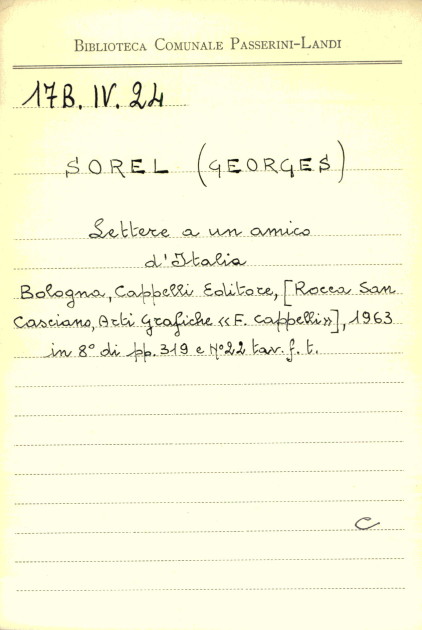 BIBLIOTECA COMUNALE PASSERINI-LANDI
17B. IV. 24
SOREL (GEORGES)
Lettere a un amico
d'Italia
Bologna, Cappelli Editore, [Rocca San
Casciano, Arti Grafiche «F. Cappelli»], 1963
in 8° di pp. 319 e N° 22 tav. f. t.
C